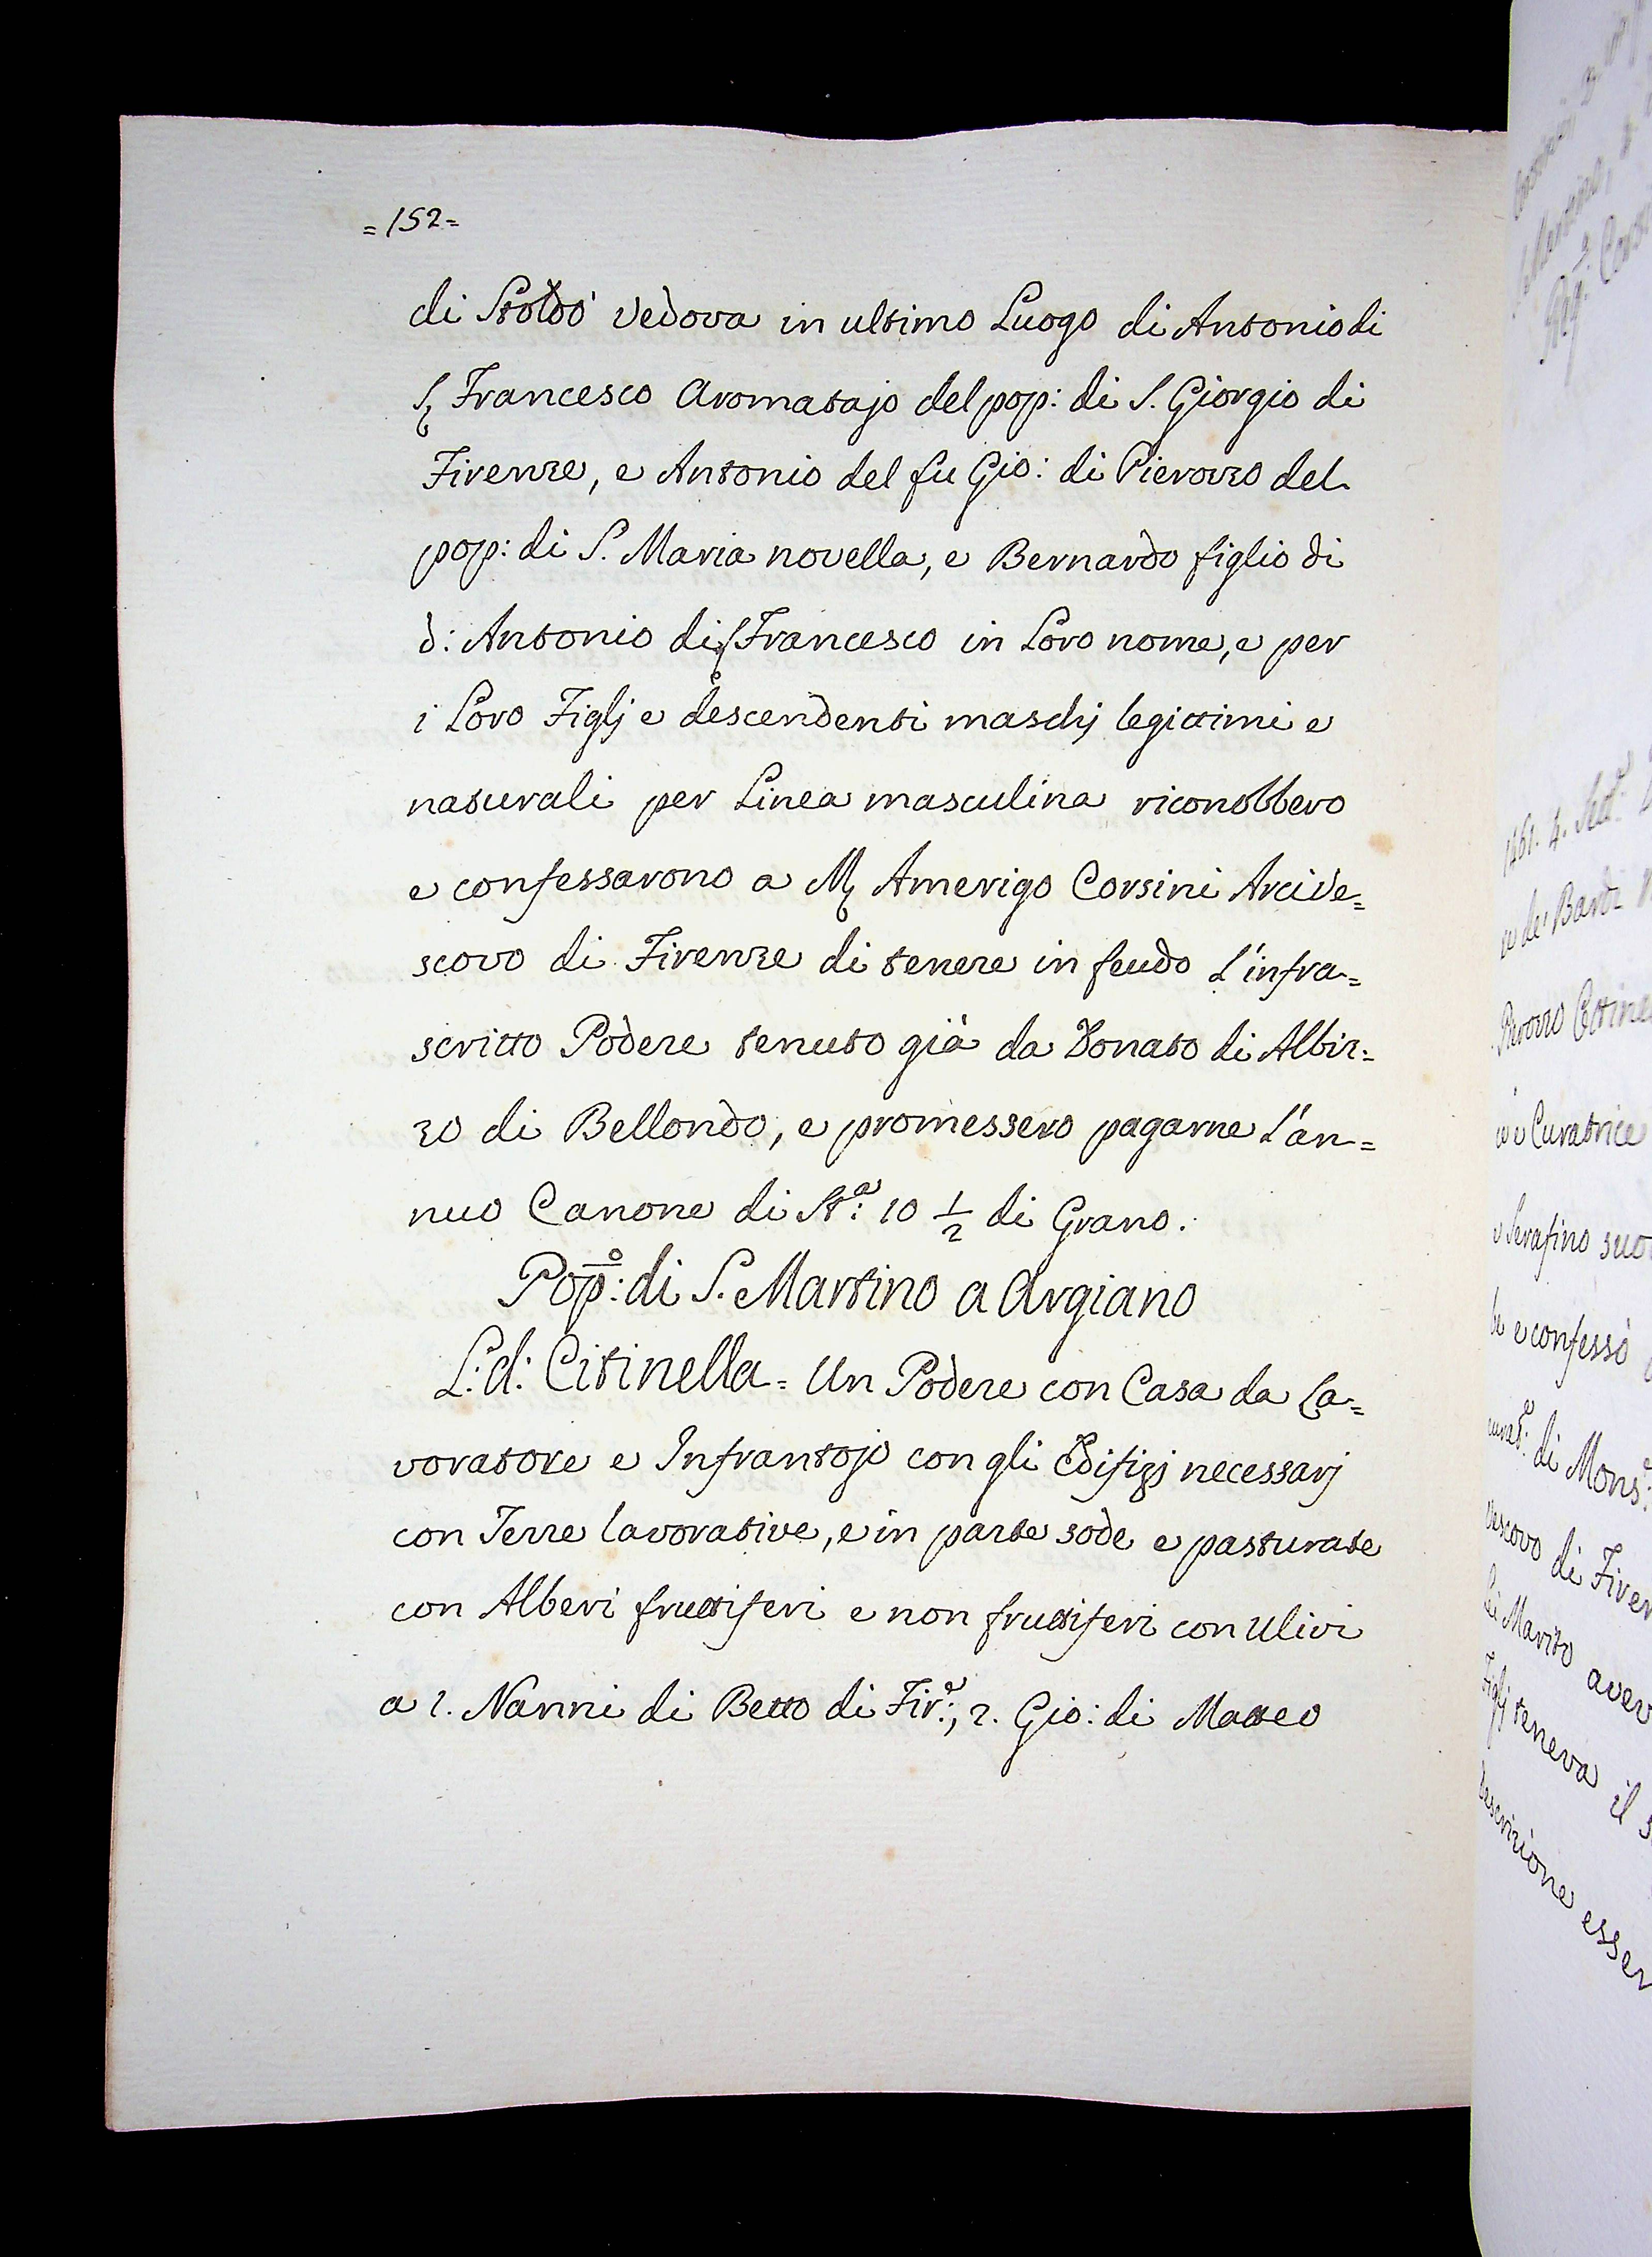 =152=
di Stoldo vedova in ultimo Luogo di Antonio di
S. Francesco Aromatajo del pop: di S. Giorgio di
Firenze, e Antonio del fu Gio: di Pierozzo del
pop: di S. Maria novella, e Bernardo figlio di
d: Antonio di S. Francesco in Loro nome, e per
i Loro Figlj e descendenti maschj legittimi e
naturali per Linea masculina riconobbero
e confessarono a M. Amerigo Corsini Arcive=
scovo di Firenze di tenere in feudo L'infra=
scritto Podere tenuto già da Donato di Albiz=
zo di Bellondo, e promessero pagarne L'an=
nuo Canone di St.ª: 10 1/2 di Grano.
Pop.º: di S. Martino a Argiano
L: d: Citinella = Un Podere con Casa da La=
voratore e Infrantojo con gli Edifizj necessarj
con Terre lavorative, e in parte sode e pasturate
con Alberi fruttiferi e non fruttiferi con Ulivi
a 1. Nanni di Betto di Fir.ᵉ:, 2. Gio: di Matteo
1461. 4.
de' Bardi
e Curatrice
Serafino suo
e confessò
di Mons.
vescovo di Firen
Marito aver
Figlj teneva il
descrizione esser